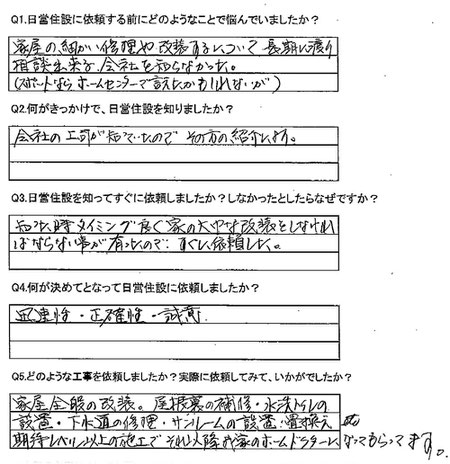 Q1.日営住設に依頼する前にどのようなことで悩んでいましたか？
家屋の、細かい修理や改装するについて長期に渡り
相談出来る会社を知らなかった。
(スポットならホームセンターで言えたかもしれないが)
Q2.何がきっかけで、日営住設を知りましたか？
会社の上司が知っていたので その方の紹介によります。
Q3.日営住設を知ってすぐに依頼しましたか？しなかったとしたらなぜですか？
知った時タイミング良く家の大巾な改装をしなけれ
ばならない事が有ったので、すぐに依頼した。
Q4.何が決めてとなって日営住設に依頼しましたか？
迅速性・正確性・誠意
Q5.どのような工事を依頼しましたか？実際に依頼してみて、いかがでしたか？
家屋全般の改装。屋根裏の補修・水洗トイレの
設置・下水道の修理・サンルームの設置、置換え
期待レベル以上の施工で それ以降 我家のホームドクターになってもらってます。